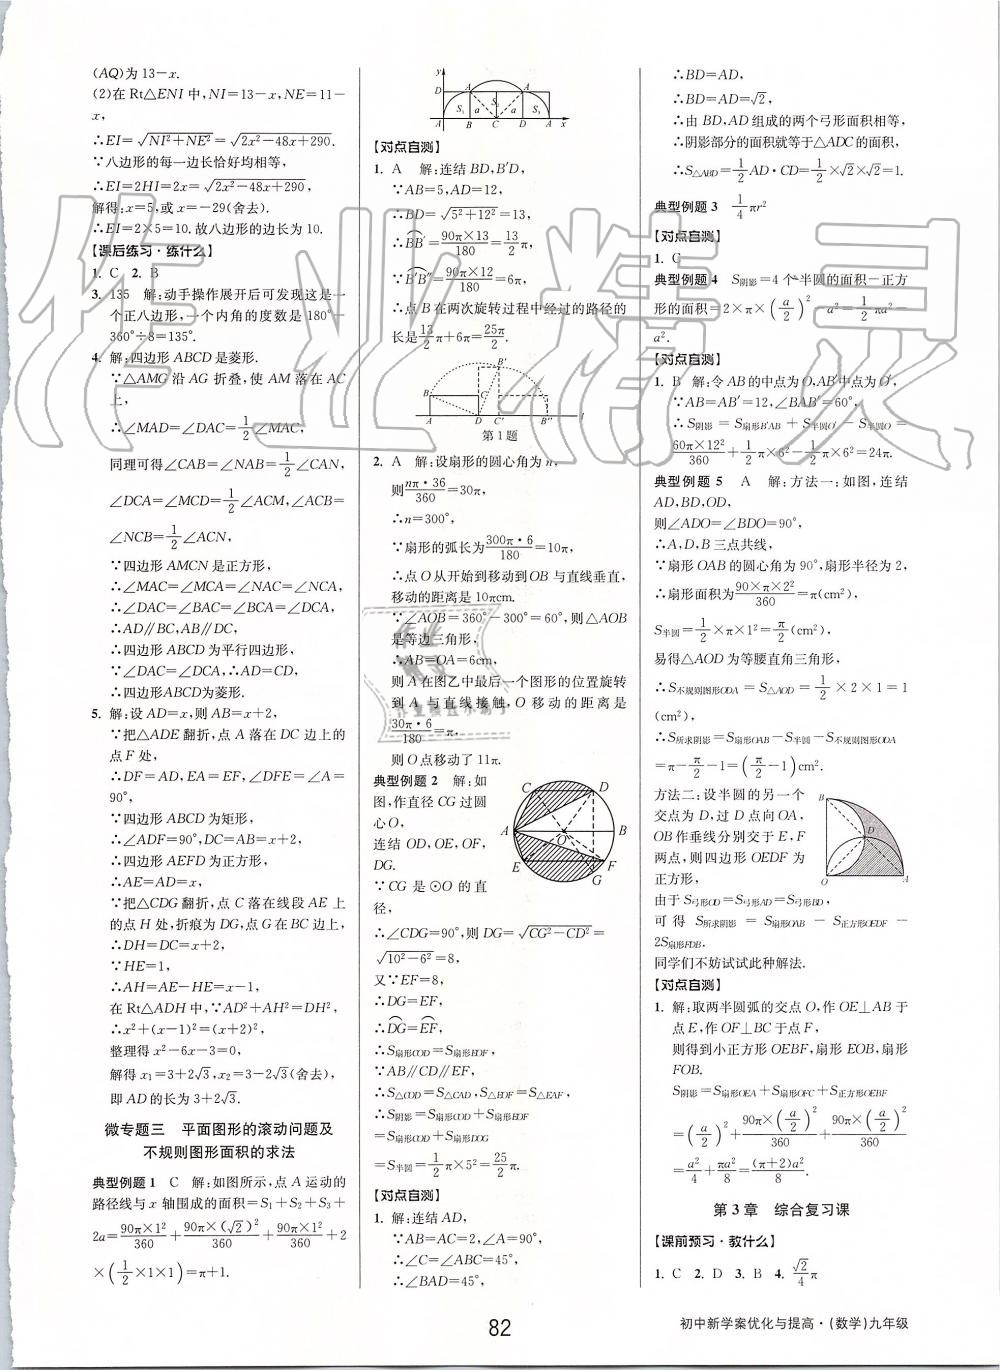 (AQ)为13－x.
(2)在Rt△ENI中,NI=13－x,NE=11－
x,
∴EI=√(NI²+NE²)=√(2x²－48x+290).
∵八边形的每一边长恰好均相等,
∴EI=2HI=2x=√(2x²－48x+290),
解得:x=5,或x=－29(舍去).
∴EI=2×5=10.故八边形的边长为10.
【课后练习·练什么】
1. C 2. B
3. 135 解:动手操作展开后可发现这是一
个正八边形,一个内角的度数是180°－
360°÷8=135°.
4. 解:四边形ABCD是菱形.
∵△AMG沿AG折叠,使AM落在AC
上,
∴∠MAD=∠DAC=1/2∠MAC,
同理可得∠CAB=∠NAB=1/2∠CAN,
∠DCA=∠MCD=1/2∠ACM,∠ACB=
∠NCB=1/2∠ACN,
∵四边形AMCN是正方形,
∴∠MAC=∠MCA=∠NAC=∠NCA,
∴∠DAC=∠BAC=∠BCA=∠DCA,
∴AD∥BC,AB∥DC,
∴四边形ABCD为平行四边形,
∵∠DAC=∠DCA,∴AD=CD,
∴四边形ABCD为菱形.
5. 解:设AD=x,则AB=x+2,
∵把△ADE翻折,点A落在DC边上的
点F处,
∴DF=AD,EA=EF,∠DFE=∠A=
90°,
∵四边形ABCD为矩形,
∴∠ADF=90°,DC=AB=x+2,
∴四边形AEFD为正方形,
∴AE=AD=x,
∵把△CDG翻折,点C落在线段AE上
的点H处,折痕为DG,点G在BC边上,
∴DH=DC=x+2,
∵HE=1,
∴AH=AE－HE=x－1,
在Rt△ADH中,∵AD²+AH²=DH²,
∴x²+(x－1)²=(x+2)²,
整理得x²－6x－3=0,
解得x₁=3+2√3,x₂=3－2√3(舍去),
即AD的长为3+2√3.
微专题三 平面图形的滚动问题及
不规则图形面积的求法
典型例题1 C 解:如图所示,点A运动的
路径线与x轴围成的面积=S₁+S₂+S₃+
2a=90π×1²/360+90π×(√2)²/360+90π×1²/360+2
×(1/2×1×1)=π+1.
y
D A A
S₁ S₂ S₃
a a
A B C D A x
【对点自测】
1. A 解:连结BD,B′D,
∵AB=5,AD=12,
∴BD=√(5²+12²)=13,
∴BB′=90π×13/180=13/2π,
∵B′B″=90π×12/180=6π,
∴点B在两次旋转过程中经过的路径的
长是13/2π+6π=25π/2.
B′
B C
A D C′ B″ l
第1题
2. A 解:设扇形的圆心角为n,
则nπ·36/360=30π,
∴n=300°,
∵扇形的弧长为300π·6/180=10π,
∴点O从开始到移动到OB与直线垂直,
移动的距离是10πcm.
∵∠AOB=360°－300°=60°,则△AOB
是等边三角形,
∴AB=OA=6cm,
则A在图乙中最后一个图形的位置旋转
到A与直线接触,O移动的距离是
30π·6/180=π.
则O点移动了11π.
典型例题2 解:如
图,作直径CG过圆
心O,
连结OD,OE,OF,
DG.
∵CG是⊙O的直
径,
C D
A O B
E F
G
∴∠CDG=90°,则DG=√(CG²－CD²)=
√(10²－6²)=8,
又∵EF=8,
∴DG=EF,
∴DG=EF,
∴S扇形ODG=S扇形EOF,
∵AB∥CD∥EF,
∴S△OCD=S△CAD,S△EOF=S△EAF,
∴S阴影=S扇形COD+S扇形EOF
=S扇形COD+S扇形DOG
=S半圆=1/2π×5²=25/2π.
【对点自测】
1. 解:连结AD,
∵AB=AC=2,∠A=90°,
∴∠C=∠ABC=45°,
∴∠BAD=45°,
∴BD=AD,
∴BD=AD=√2,
∴由BD,AD组成的两个弓形面积相等,
∴阴影部分的面积就等于△ADC的面积,
∴S△ABD=1/2AD·CD=1/2×√2×√2=1.
典型例题3 1/4πr²
【对点自测】
1. C
典型例题4 S阴影=4个半圆的面积－正方
形的面积=2×π×(a/2)²－a²=1/2πa²－
a².
【对点自测】
1. B 解:令AB的中点为O,AB′中点为O′,
∵AB=AB′=12,∠BAB′=60°,
∴S阴影=S扇形B′AB+S半圆O′－S半圆O=
60π×12²/360+1/2π×6²－1/2π×6²=24π.
典型例题5 A 解:方法一:如图,连结
AD,BD,OD,
则∠ADO=∠BDO=90°,
∴A,D,B三点共线,
∵扇形OAB的圆心角为90°,扇形半径为2,
∴扇形面积为90×π×2²/360=π(cm²),
S半圆=1/2×π×1²=π/2(cm²),
易得△AOD为等腰直角三角形,
∴S不规则图形ODA=S△AOD=1/2×2×1=1
(cm²),
∴S所求阴影=S扇形OAB－S半圆－S不规则图形ODA
=π－π/2－1=(π/2－1)(cm²).
方法二:设半圆的另一个
交点为D,过D点向OA,
OB作垂线分别交于E,F
两点,则四边形OEDF为
正方形,
B
D
O A
由于S弓形OD=S弓形AD=S弓形BD,
可得S所求阴影=S扇形OAB－S正方形OEDF－
2S扇形FDB.
同学们不妨试试此种解法.
【对点自测】
1. 解:取两半圆弧的交点O,作OE⊥AB于
点E,作OF⊥BC于点F,
则得到小正方形OEBF,扇形EOB,扇形
FOB.
S阴影=S扇形OEA+S扇形OFC+S正方形OEBF
=(a/2)²+90π×(a/2)²/360+90π×(a/2)²/360
=a²/4+πa²/8=(π+2)a²/8.
第3章 综合复习课
【课前预习·教什么】
1. C 2. D 3. B 4. √2/4π
82
初中新学案优化与提高·(数学)九年级
作业精灵